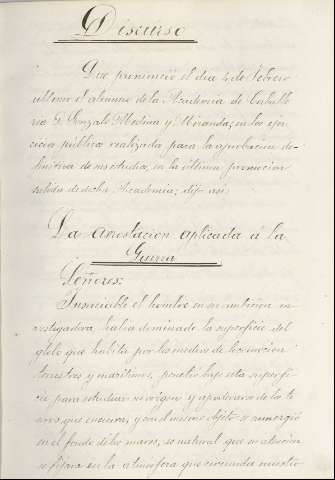 Discurso
Que pronunció el día 4 de Febrero
último el alumno de la Academia de Caballe
ria D. Gonzalo Medina y Miranda, en los ejer
cicios públicos realizados para la aprobación de-
finitiva de sus estudios, en la última promoción
salida de dicha Academia; dijo así
La aerostacion aplicada á la
Guerra
Señores:
Insaciable el hombre en su ambicion in
vestigadora, habia dominado la superficie del
globo que habita por los medios de locomocion
terrestres y maritimos, penetró bajo esta superfi-
cie para estudiar su origen y apoderarse de los te
soros que encierra, y con el mismo objeto se sumergió
en el fondo de los mares, es natural que su atencion
se fijara en la atmosfera que circunda nuestro